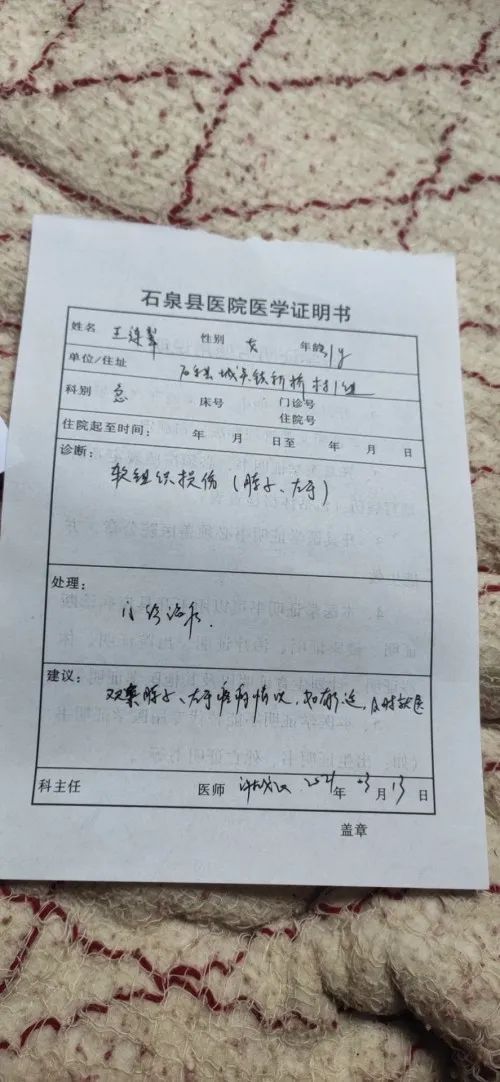 石泉县医院医学证明书
姓名 王 翠 性别 女 年龄 31岁
单位/住址 石泉县城关镇新桥村1组
科别 急 床号 门诊号
住院号
住院起至时间： 年 月 日至 年 月 日
诊断：
软组织损伤（脖子、左手）
处理：
门诊治疗.
建议：
观察脖子、左手疼痛情况，如有不适，及时就医
科主任 医师 2021年 03月13日
盖章